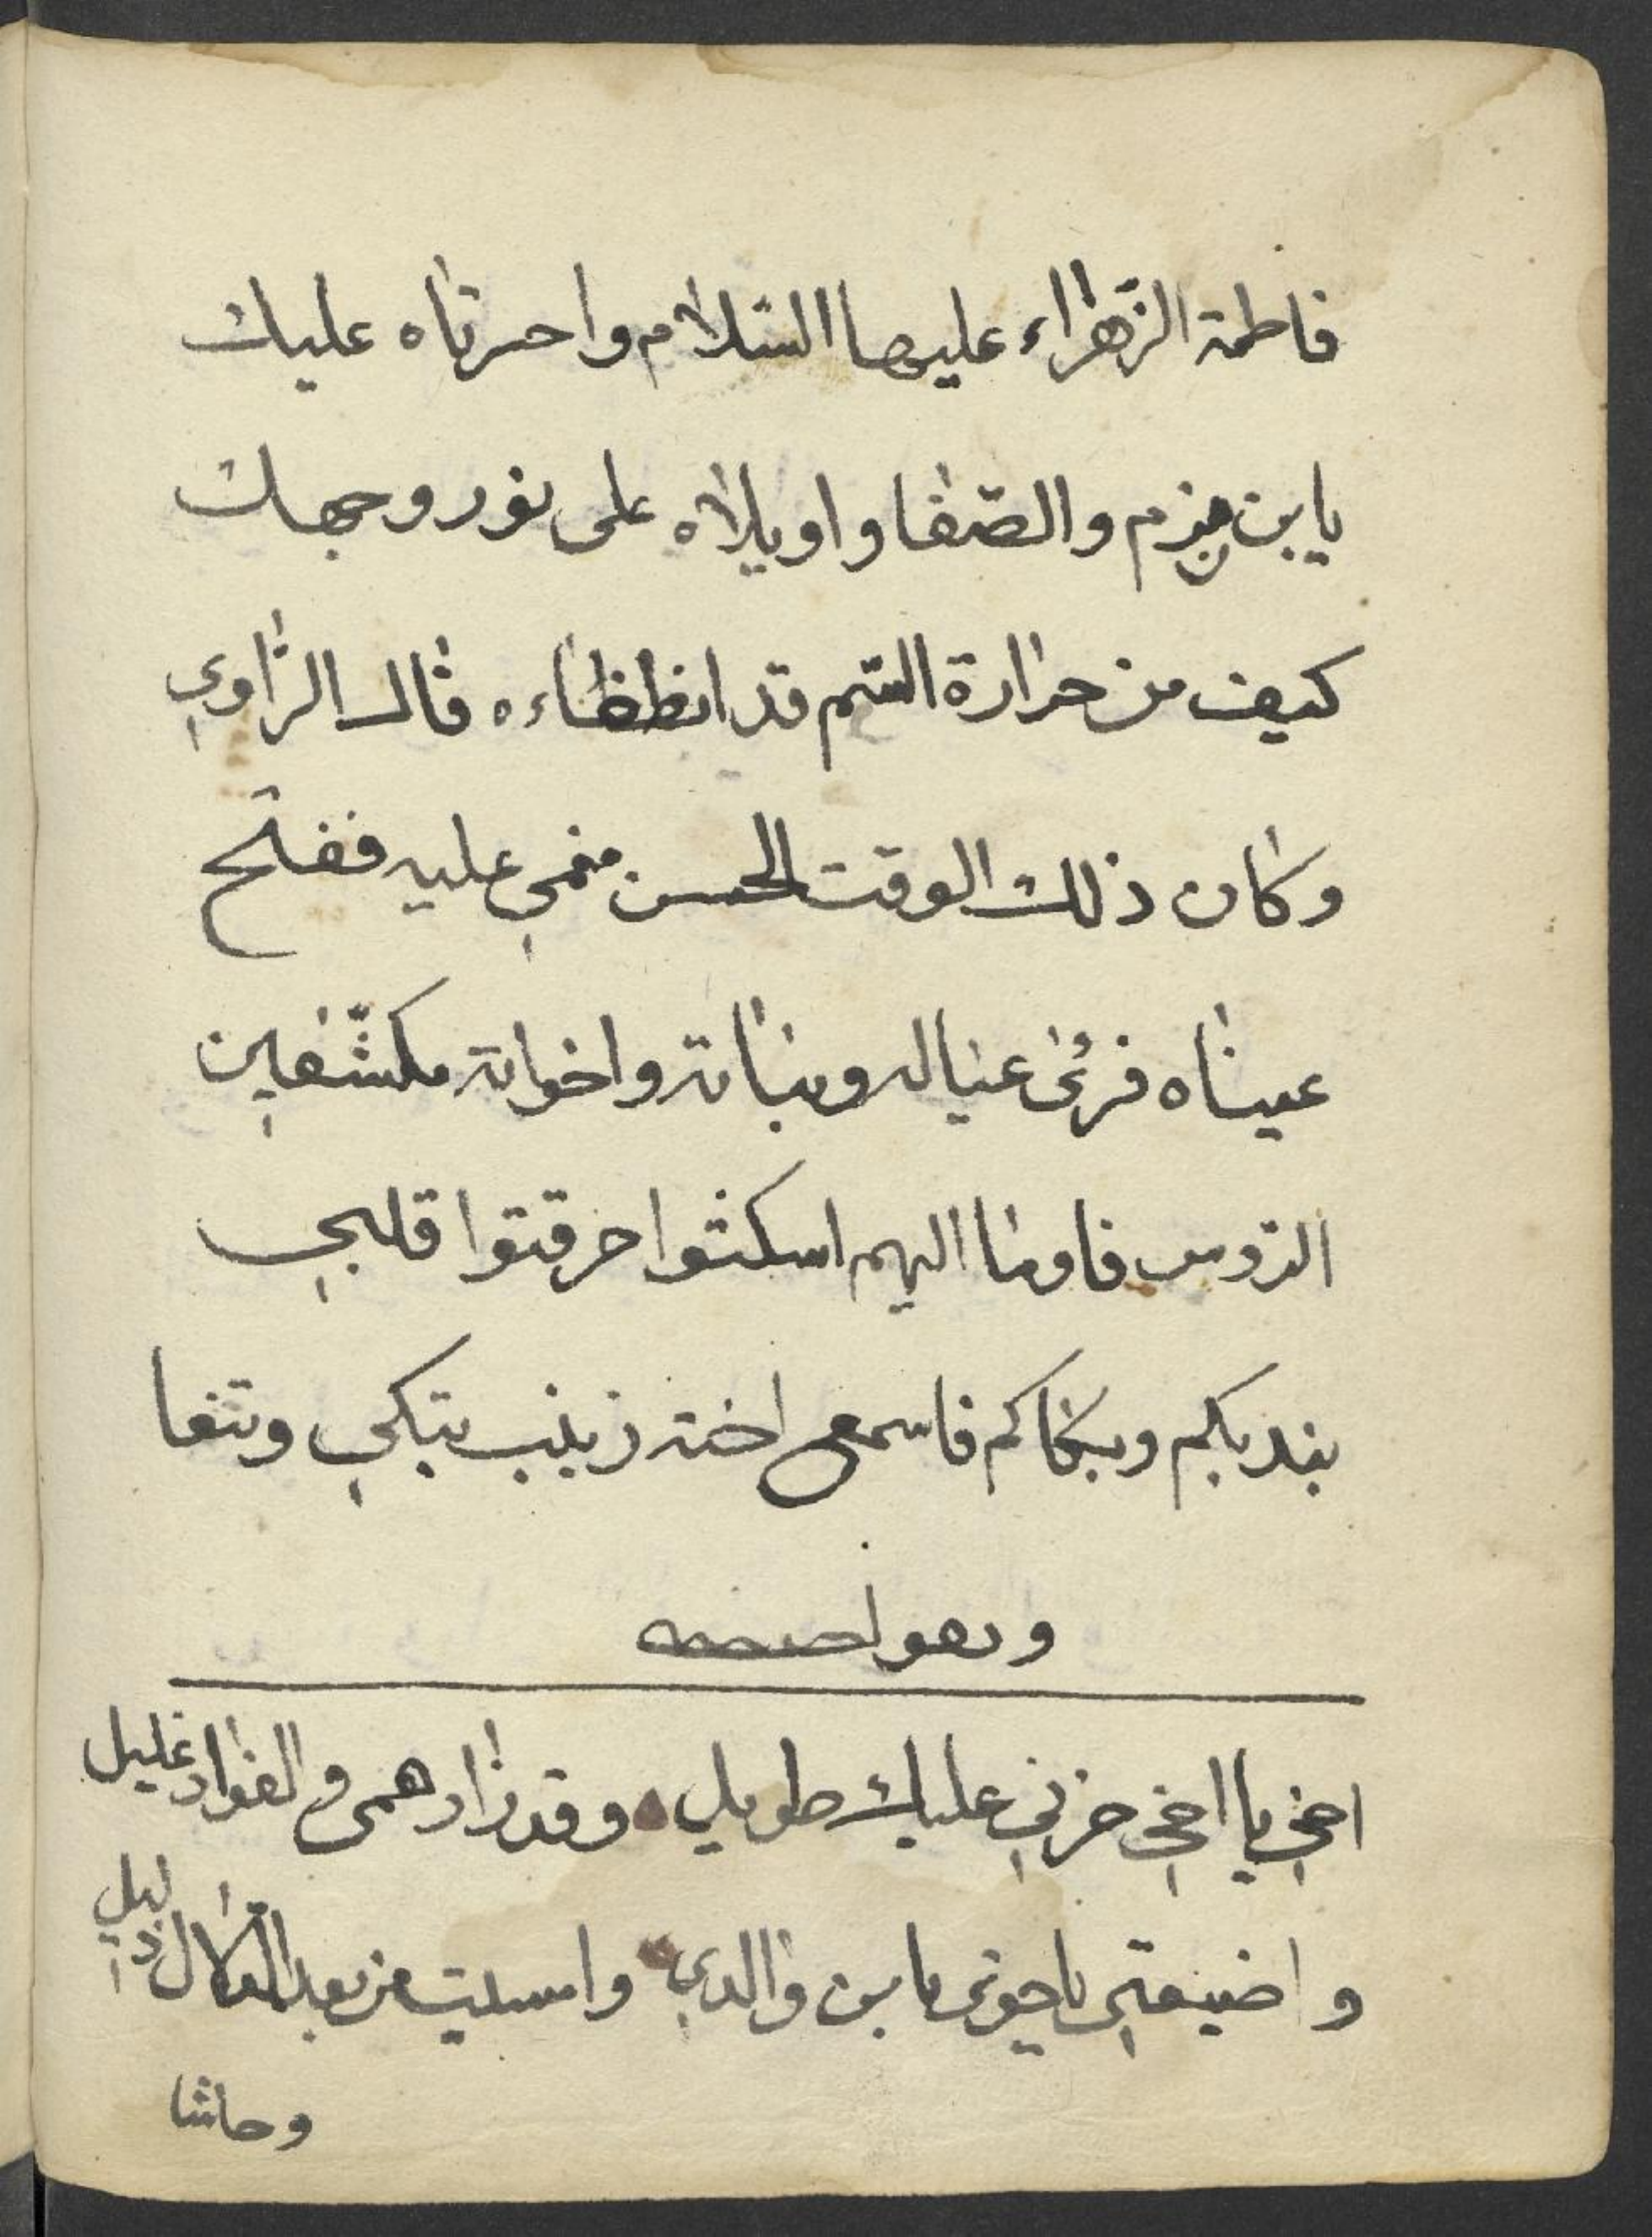 فاطمة الزهراء عليها السلام واحسرتاه عليك
يا بن مزم والصّفا واويلاه على نور وجهك
كيف من حرارة السّم قد انطظاءه قال الرّاوي
وكان ذلك الوقت الحسن مغمي عليه ففتح
عيناه فرئى عياله وبناته واخواته مكشّفين
الرّوس فاوما اليهم اسكتوا حرقتوا قلبي
بنديكم وببكاكم فاسمع اخته زينب تبكي وتنعا
وتقول
اخي يا اخي حزني عليك طويل وقد زاد همي والفواد غليل
واضيعتي يا خوي يا بن والدي وامسيت من بعد الدّلال ذليل
وحاشا